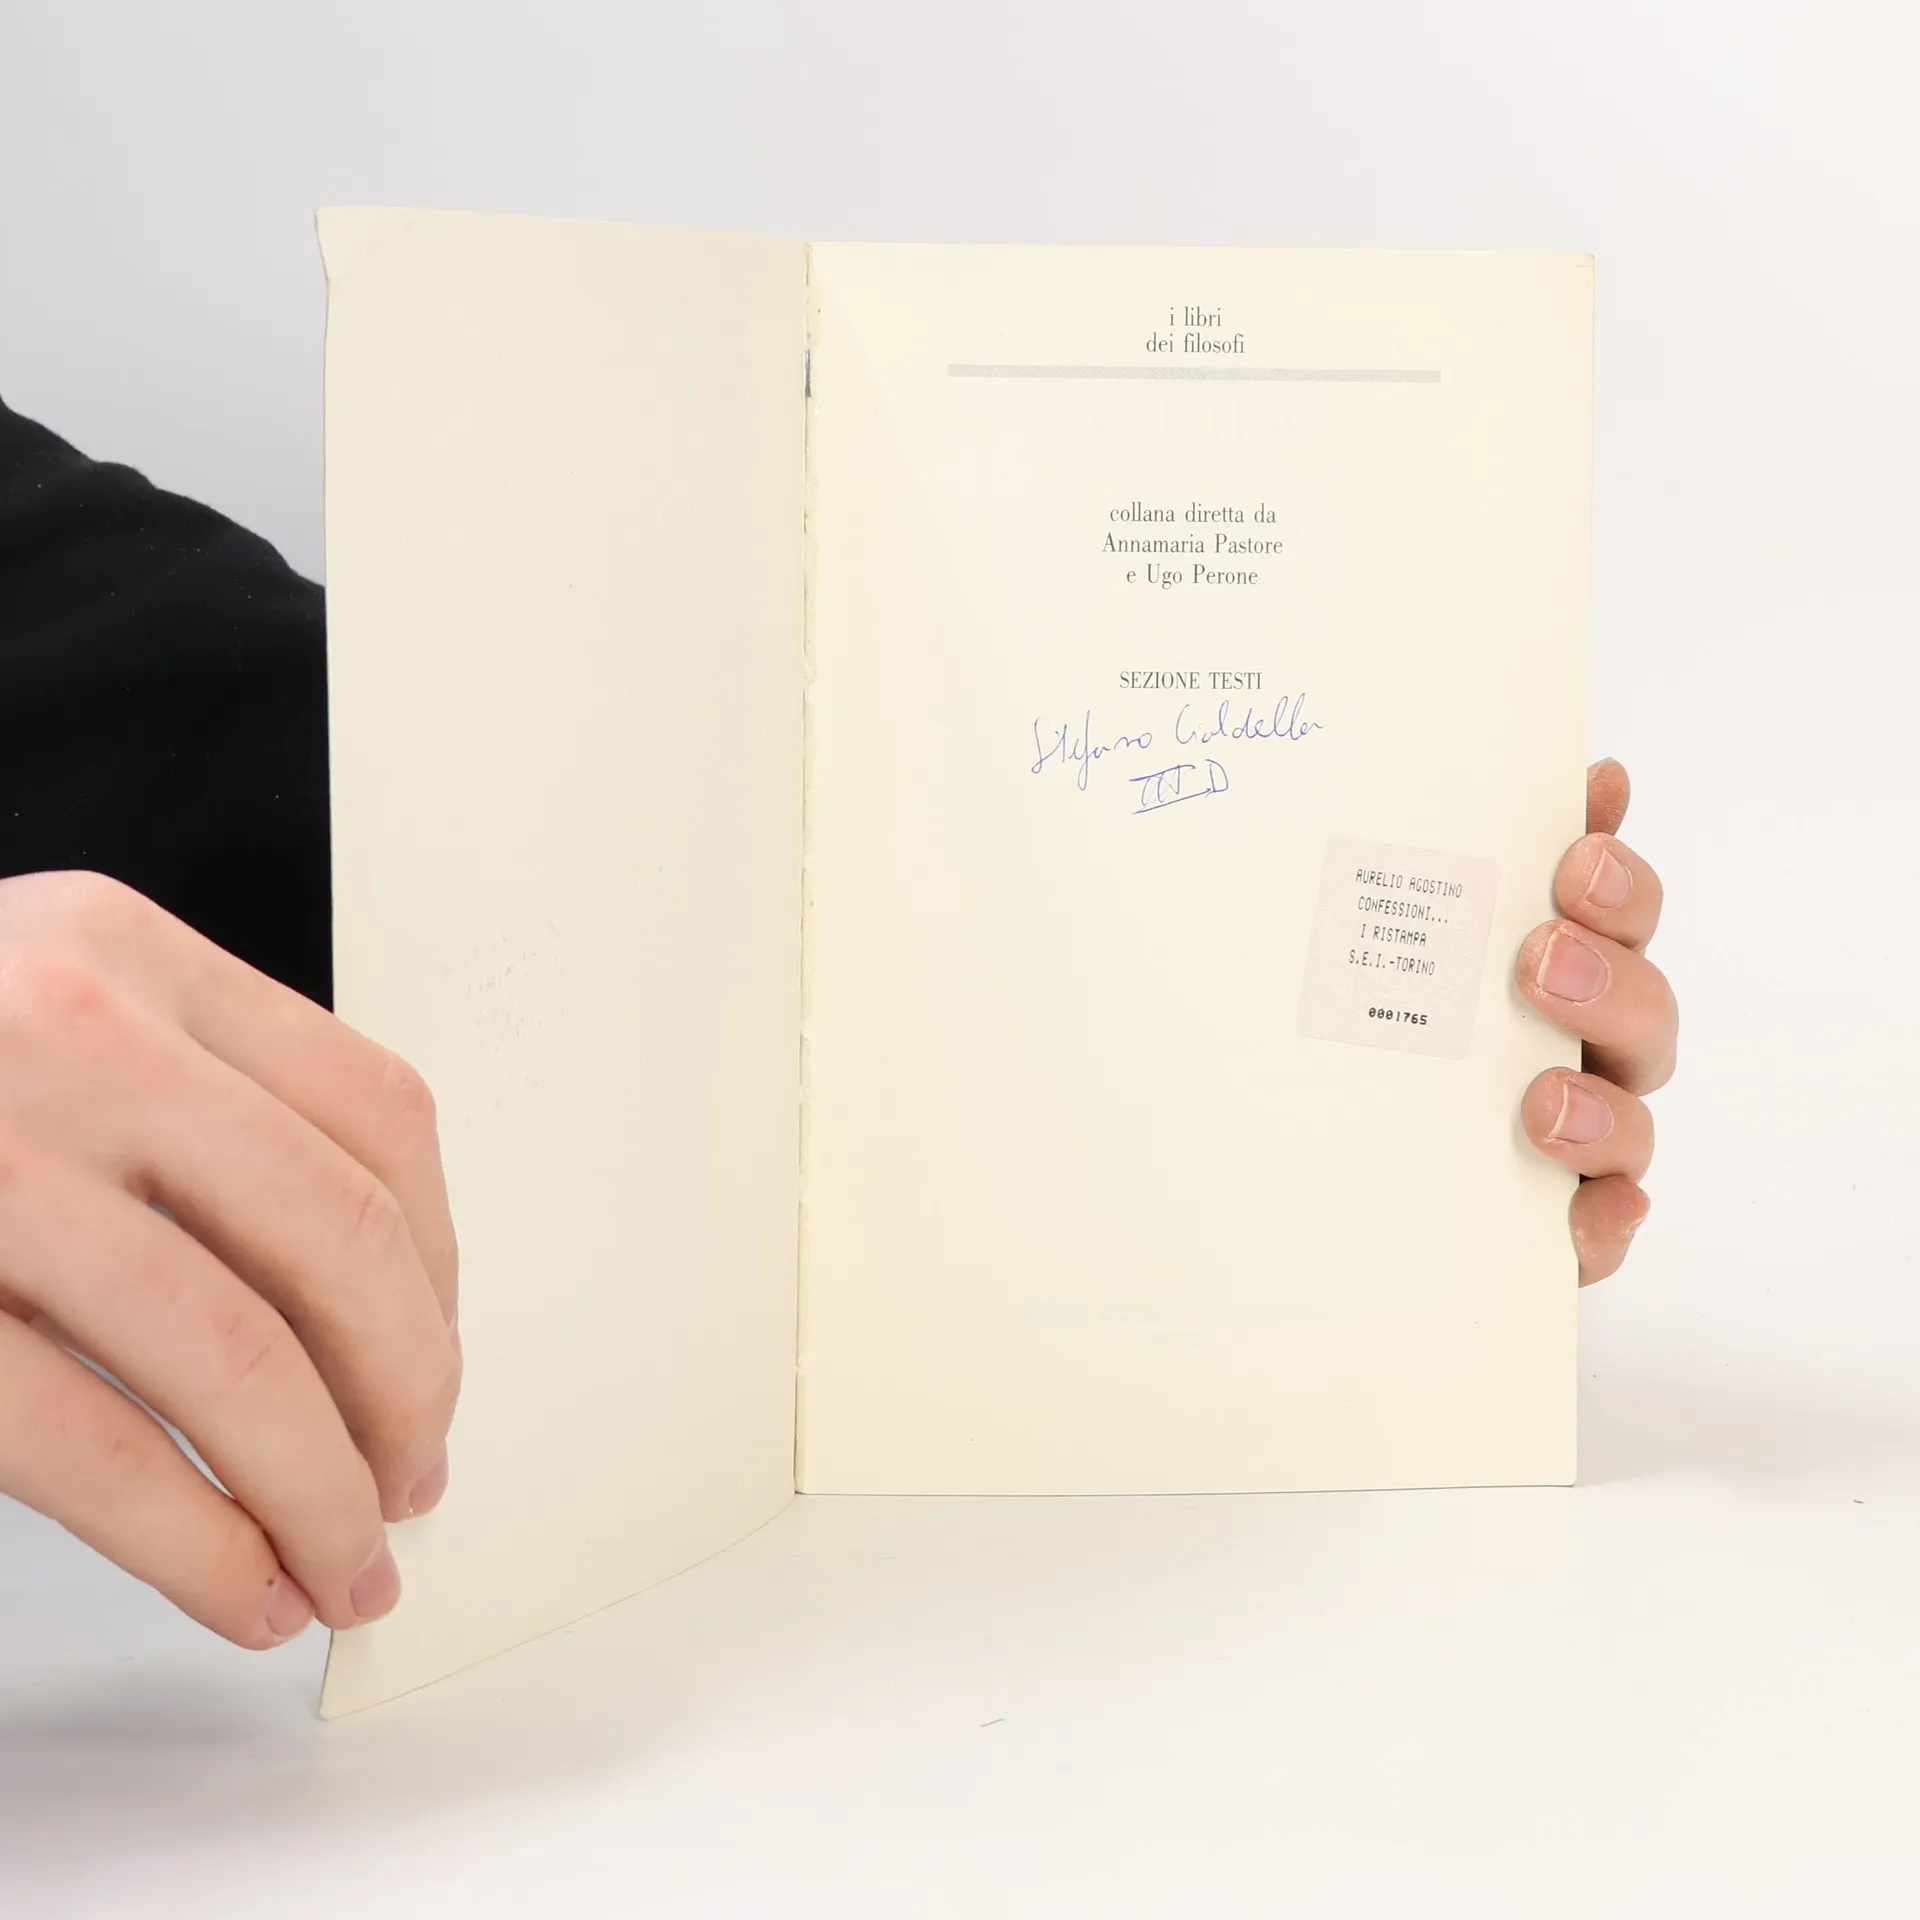 i libri
dei filosofi
collana diretta da
Annamaria Pastore
e Ugo Perone
SEZIONE TESTI
Stefano Cialdella
III D
AURELIO AGOSTINO
CONFESSIONI...
I RISTAMPA
S.E.I.-TORINO
0001765